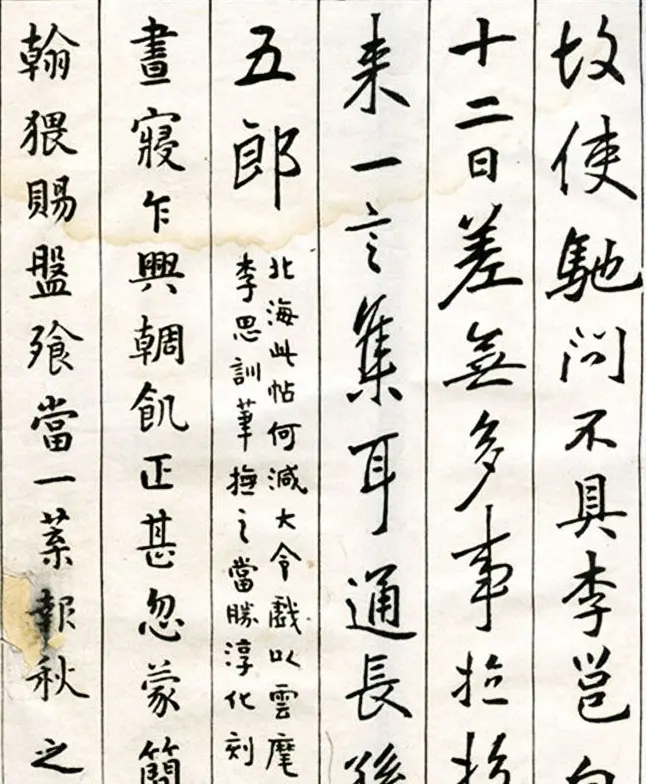 故使馳問不具李邕
十二日差無多事撿
来一言集耳通長孫
五郎
北海此帖何減大令戲以雲麾
李思訓筆撫之當勝淳化刻
晝寢乍興輖飢正甚忽蒙簡
翰猥賜盤飱當一葉報秋之